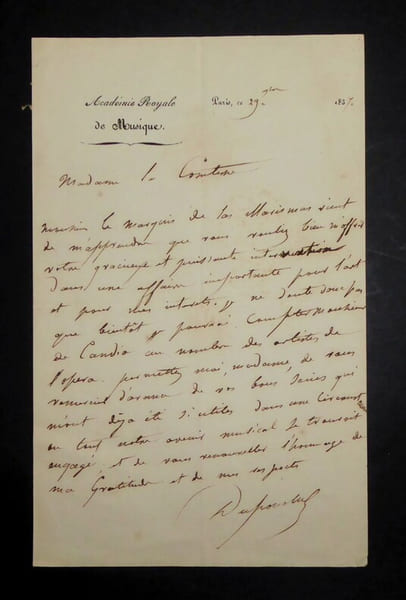 Académie Royale
de Musique.
Paris, ce 29 183
Madame la Comtesse
monsieur le marquis de las Marismas vient
de m'apprendre que vous voulez bien m'offrir
votre gracieuse et puissante intervention
dans une affaire importante pour l'art
et pour mes interets. je ne doute donc pas
que bientôt je pourrai compter monsieur
de Candia au nombre des artistes de
l'opera. permettez moi, madame, de vous
remercier d'avance de vos bons soins qui
m'ont déja été si utiles dans une circonstance
ou tout notre avenir musical se trouvait
engagé, et de vous renouveller l'hommage de
ma Gratitude et de mes respects
Duponchel